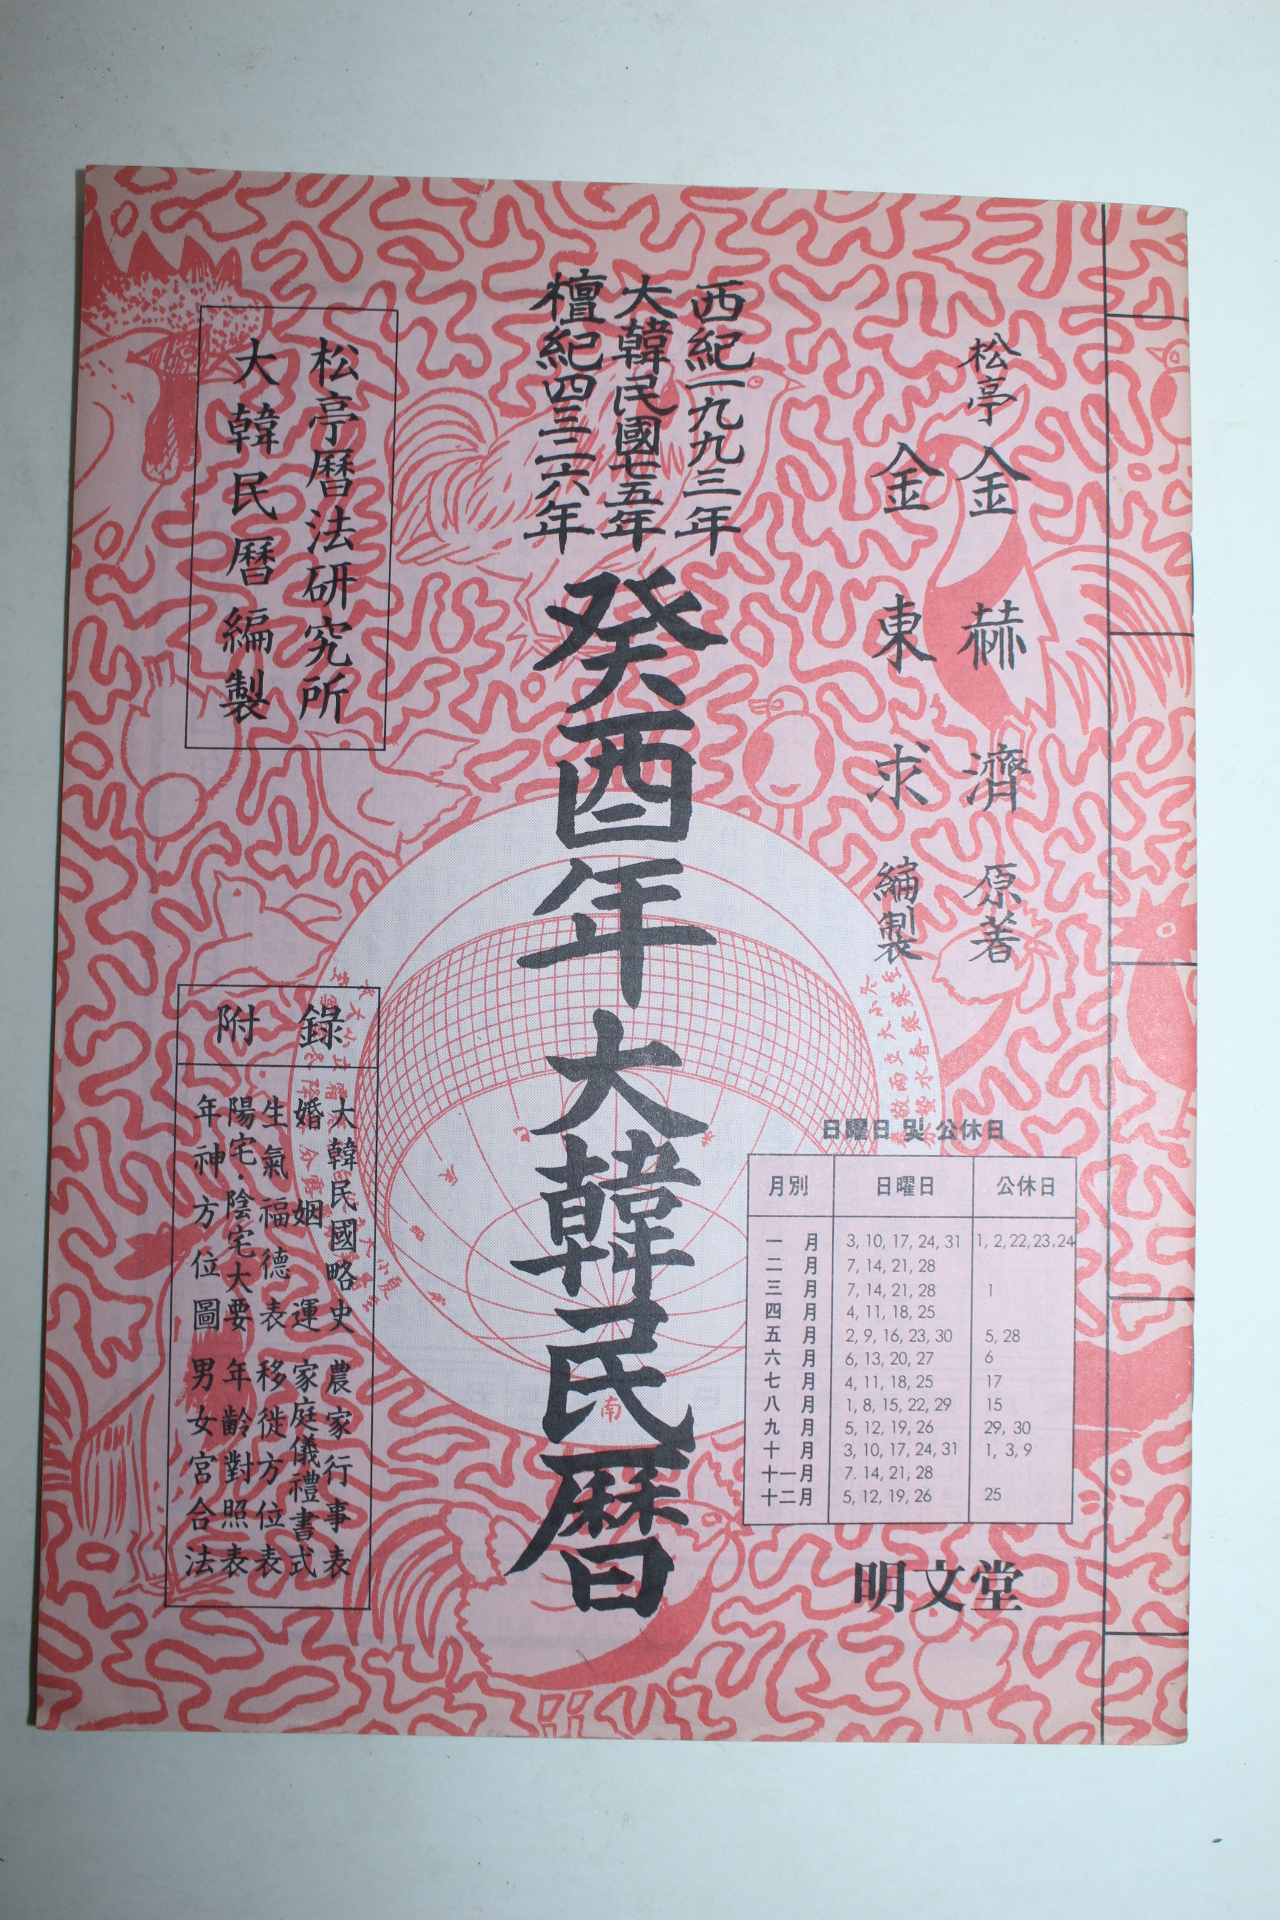 西紀一九九三年
大韓民國七五年
檀紀四三二六年
癸酉年大韓民曆
松亭 金赫濟 原著
金東求 編製
松亭曆法研究所
大韓民曆編製
附錄
大韓民國略史 農家行事表
婚姻運 家庭儀禮書式
生氣福德表 移徙方位表
陽宅·陰宅大要 年齡對照表
年神方位圖 男女宮合法
日曜日 및 公休日
月別 日曜日 公休日
一月 3, 10, 17, 24, 31 1, 2, 22, 23, 24
二月 7, 14, 21, 28
三月 7, 14, 21, 28 1
四月 4, 11, 18, 25
五月 2, 9, 16, 23, 30 5, 28
六月 6, 13, 20, 27 6
七月 4, 11, 18, 25 17
八月 1, 8, 15, 22, 29 15
九月 5, 12, 19, 26 29, 30
十月 3, 10, 17, 24, 31 1, 3, 9
十一月 7. 14, 21, 28
十二月 5, 12, 19, 26 25
南
明文堂